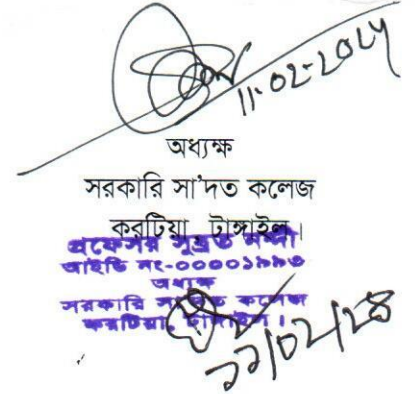 11-02-2024
অধ্যক্ষ
সরকারি সা'দত কলেজ
করটিয়া, টাঙ্গাইল।
প্রফেসর সুব্রত নন্দী
আইডি নং-০০০০১৯৯৩
অধ্যক্ষ
সরকারি সা'দত কলেজ
করটিয়া, টাঙ্গাইল।